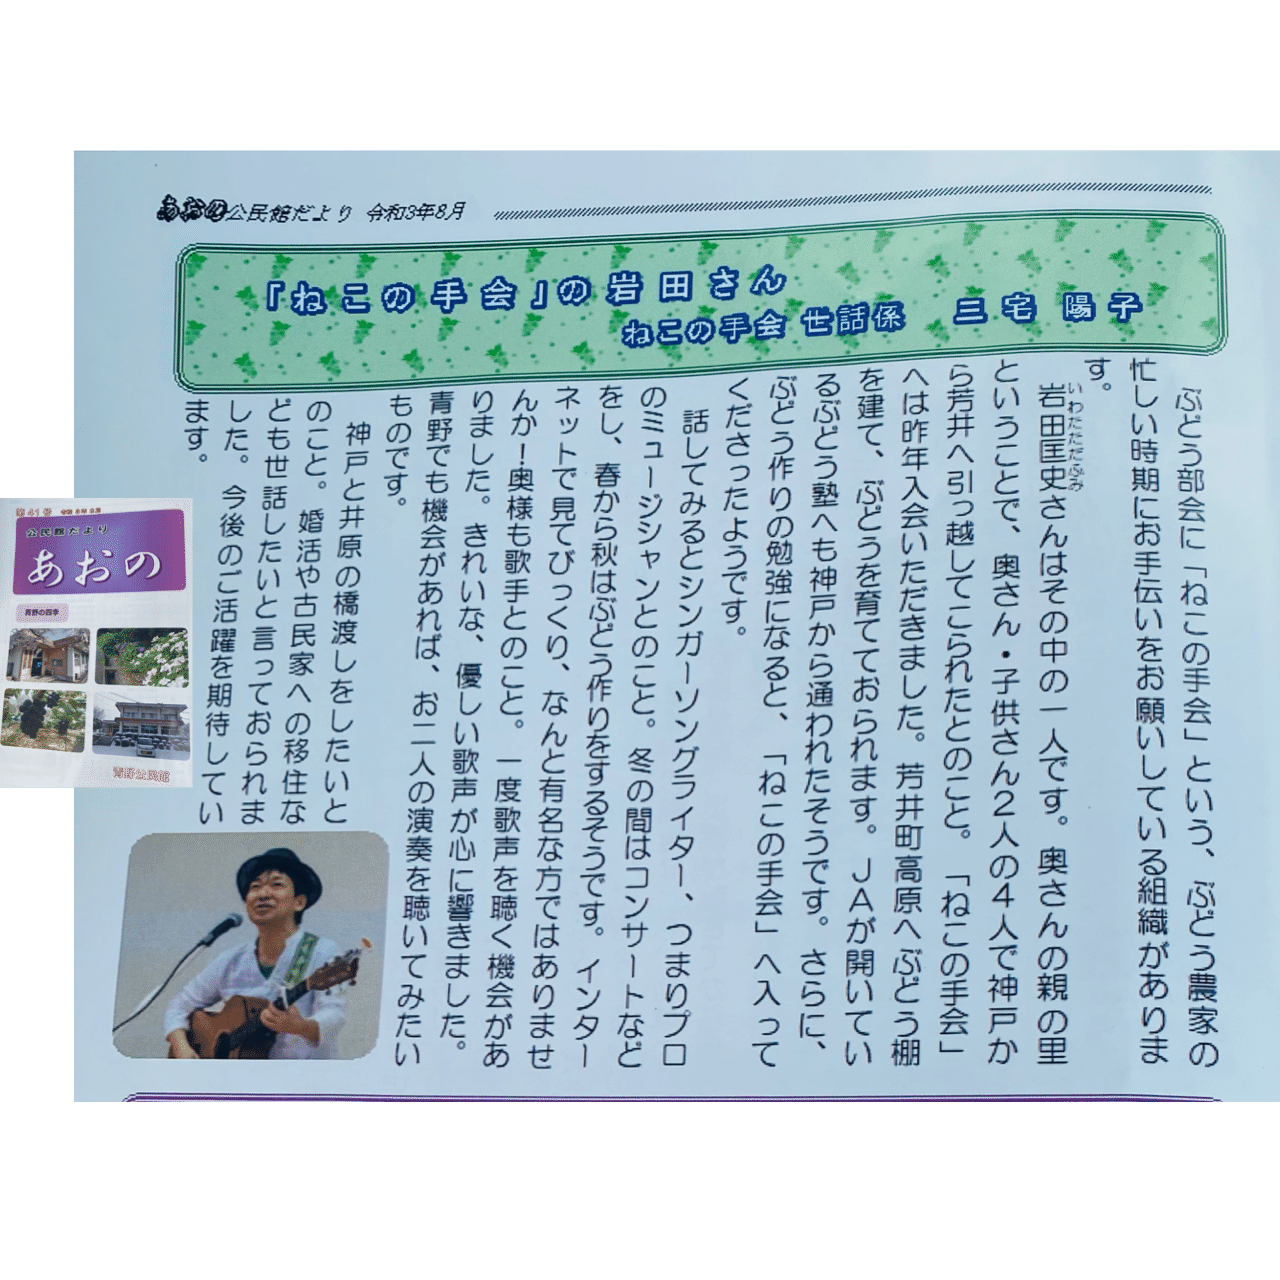 あおの公民館だより 令和3年8月
「ねこの手会」の岩田さん
ねこの手会 世話係 三宅 陽子
ぶどう部会に「ねこの手会」という、ぶどう農家の
忙しい時期にお手伝いをお願いしている組織がありま
す。
いわたただふみ
岩田匡史さんはその中の一人です。奥さんの親の里
ということで、奥さん・子供さん2人の4人で神戸か
ら芳井へ引っ越してこられたとのこと。「ねこの手会」
へは昨年入会いただきました。芳井町高原へぶどう棚
を建て、ぶどうを育てておられます。JAが開いてい
るぶどう塾へも神戸から通われたそうです。さらに、
ぶどう作りの勉強になると、「ねこの手会」へ入って
くださったようです。
話してみるとシンガーソングライター、つまりプロ
のミュージシャンとのこと。冬の間はコンサートなど
をし、春から秋はぶどう作りをするそうです。インター
ネットで見てびっくり、なんと有名な方ではありませ
んか!奥様も歌手とのこと。一度歌声を聴く機会があ
りました。きれいな、優しい歌声が心に響きました。
青野でも機会があれば、お二人の演奏を聴いてみたい
ものです。
神戸と井原の橋渡しをしたいと
のこと。婚活や古民家への移住な
ども世話したいと言っておられま
した。今後のご活躍を期待してい
ます。
第41号
公民館だより
あおの
青野の四季
青野公民館